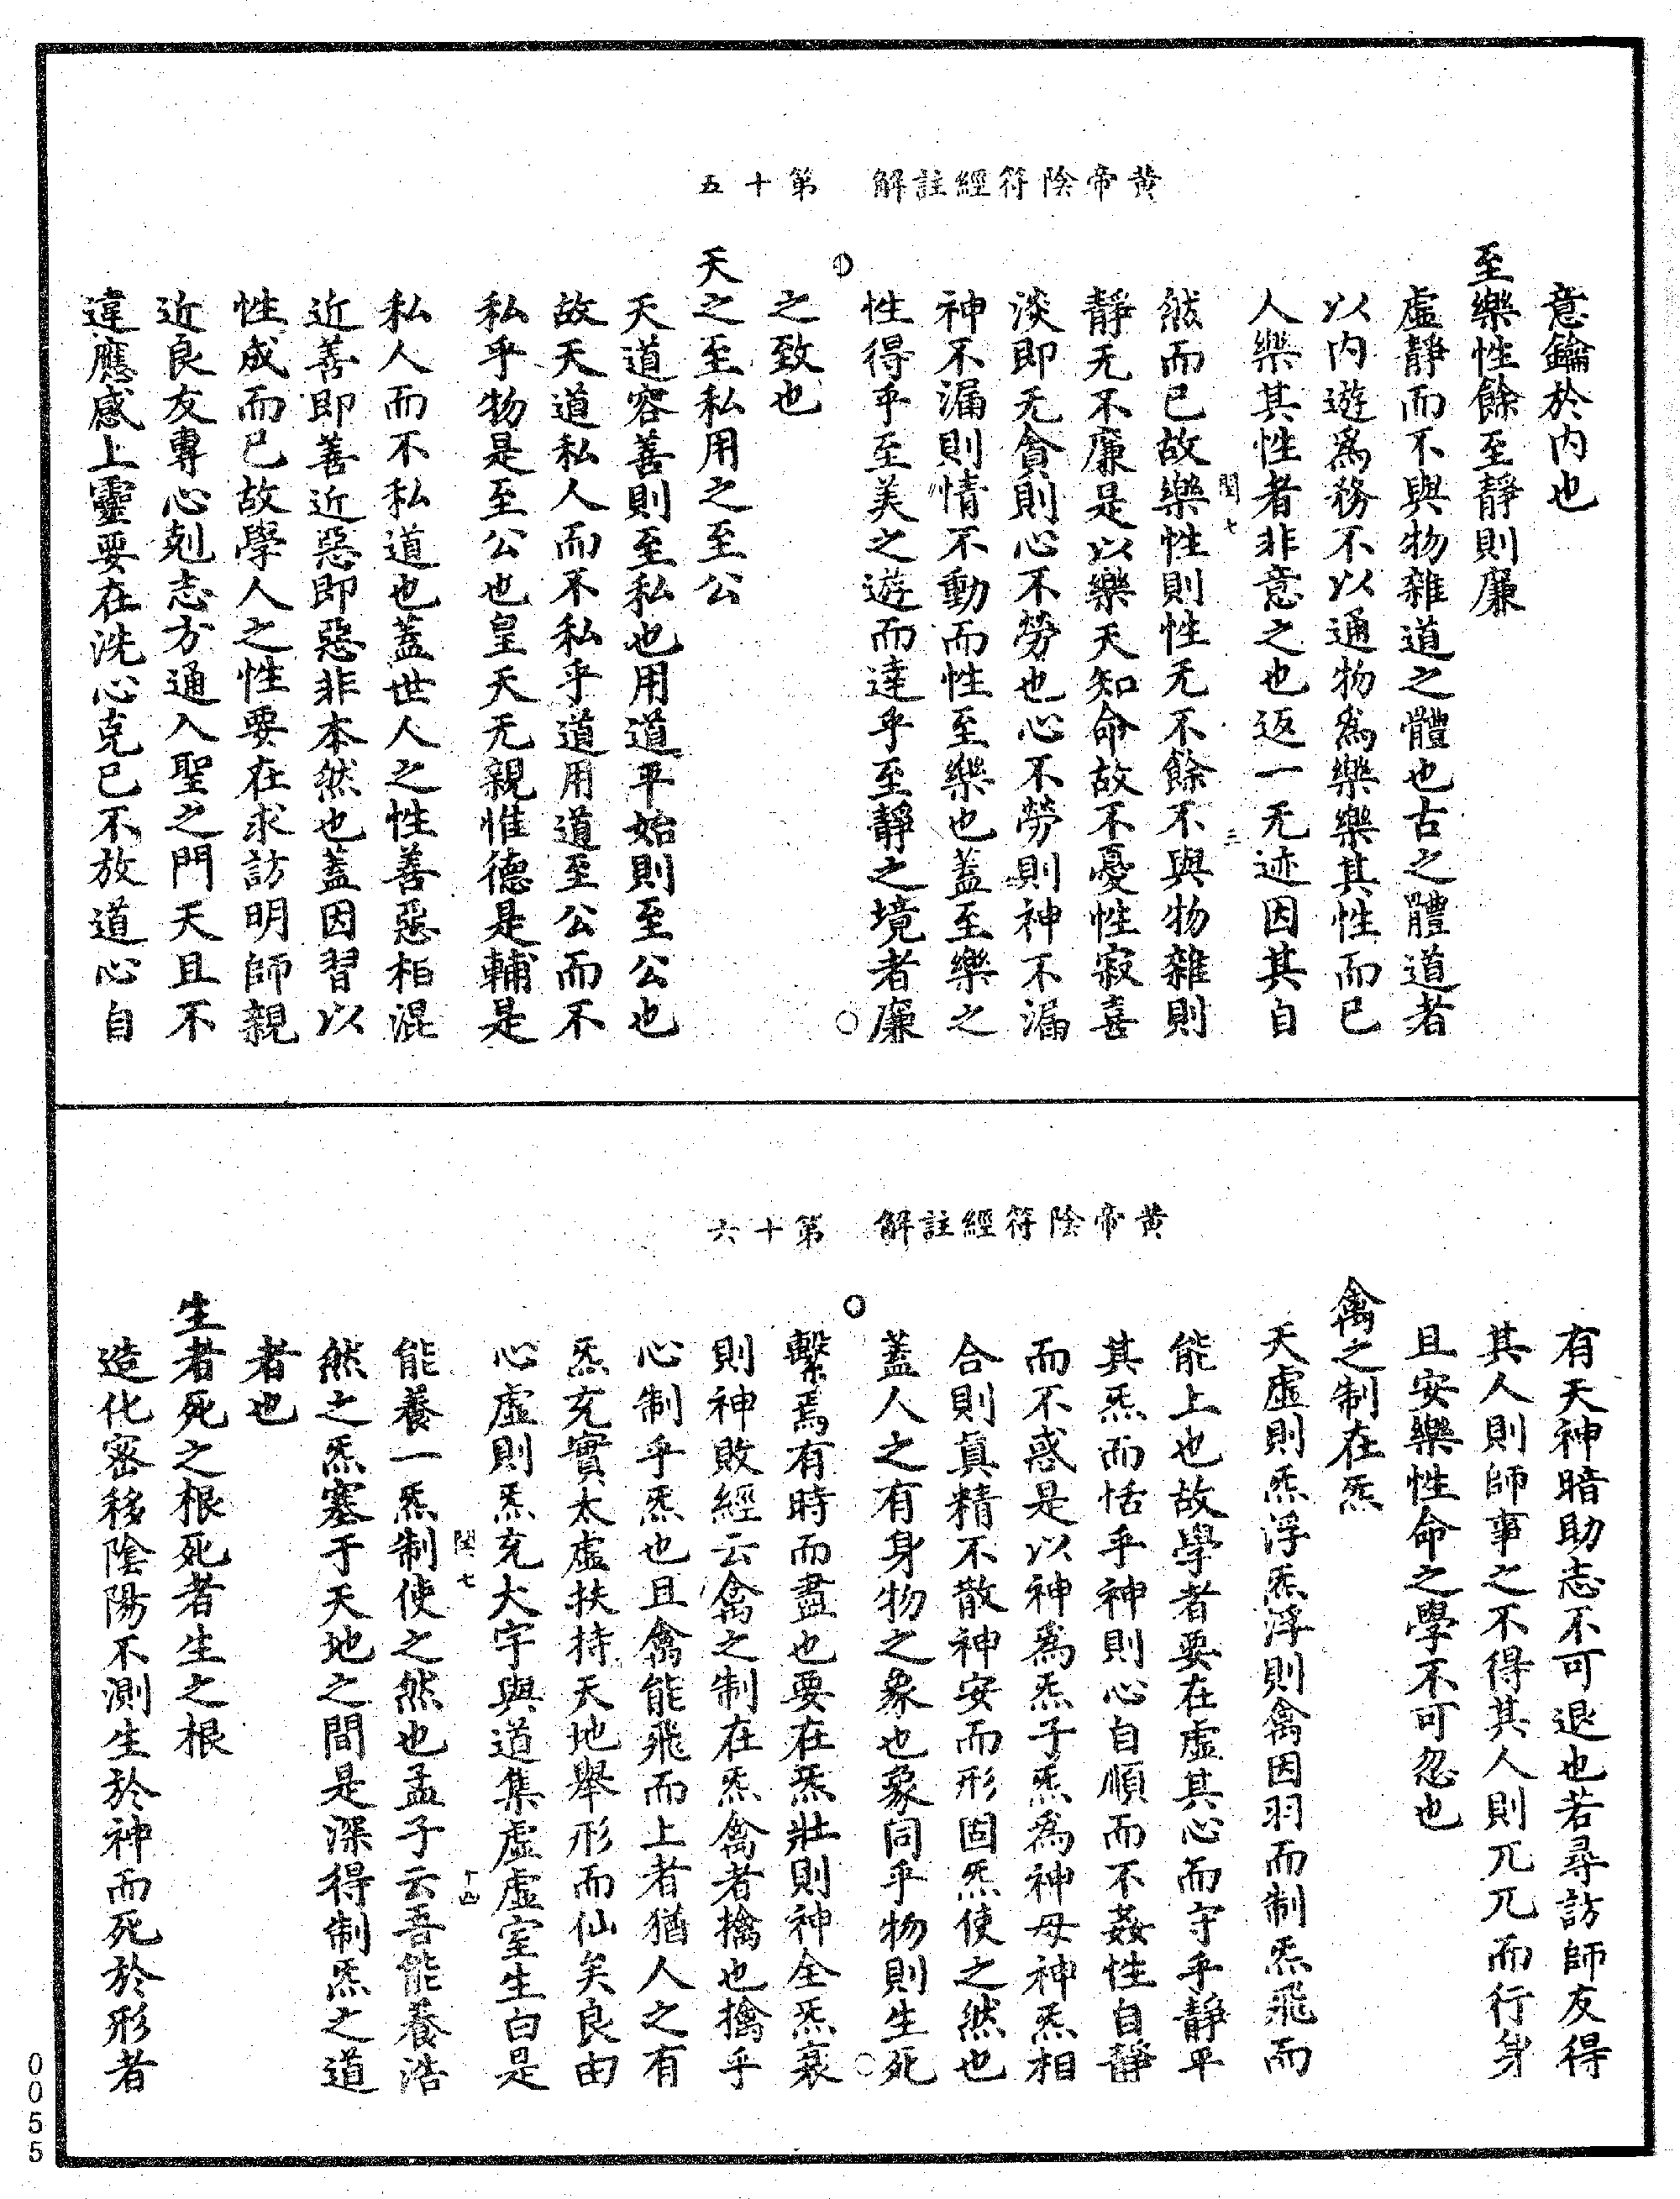 黃帝陰符經註解　第十五
意鑰於内也
至樂性餘至靜則廉
虛靜而不與物雜道之體也古之體道者
以内遊爲務不以通物爲樂樂其性而已
人樂其性者非意之也返一无迹因其自
閏七　三
然而已故樂性則性无不餘不與物雜則
靜无不廉是以樂天知命故不憂性寂喜
淡即无貪則心不勞也心不勞則神不漏
神不漏則情不動而性至樂也蓋至樂之
性得乎至美之遊而達乎至靜之境者廉
之致也
天之至私用之至公
天道容善則至私也用道平始則至公也
故天道私人而不私乎道用道至公而不
私乎物是至公也皇天无親惟德是輔是
私人而不私道也蓋世人之性善惡相混
近善即善近惡即惡非本然也蓋因習以
性成而已故學人之性要在求訪明師親
近良友專心剋志方通入聖之門天且不
違應感上靈要在洗心克已不放道心自
黃帝陰符經註解　第十六
有天神暗助志不可退也若尋訪師友得
其人則師事之不得其人則兀兀而行身
且安樂性命之學不可忽也
禽之制在炁
天虛則炁浮炁浮則禽因羽而制炁飛而
能上也故學者要在虛其心而守乎靜平
其炁而恬乎神則心自順而不姦性自靜
而不惑是以神爲炁子炁爲神母神炁相
合則真精不散神安而形固炁使之然也
蓋人之有身物之象也象同乎物則生死
繫焉有時而盡也要在炁壯則神全炁衰
則神敗經云禽之制在炁禽者擒也擒乎
心制乎炁也且禽能飛而上者猶人之有
炁充實太虛扶持天地舉形而仙矣良由
心虛則炁充大宇與道集虛虛室生白是
閏七　十四
能養一炁制使之然也孟子云吾能養浩
然之炁塞于天地之間是深得制炁之道
者也
生者死之根死者生之根
造化密移陰陽不測生於神而死於形者
0055